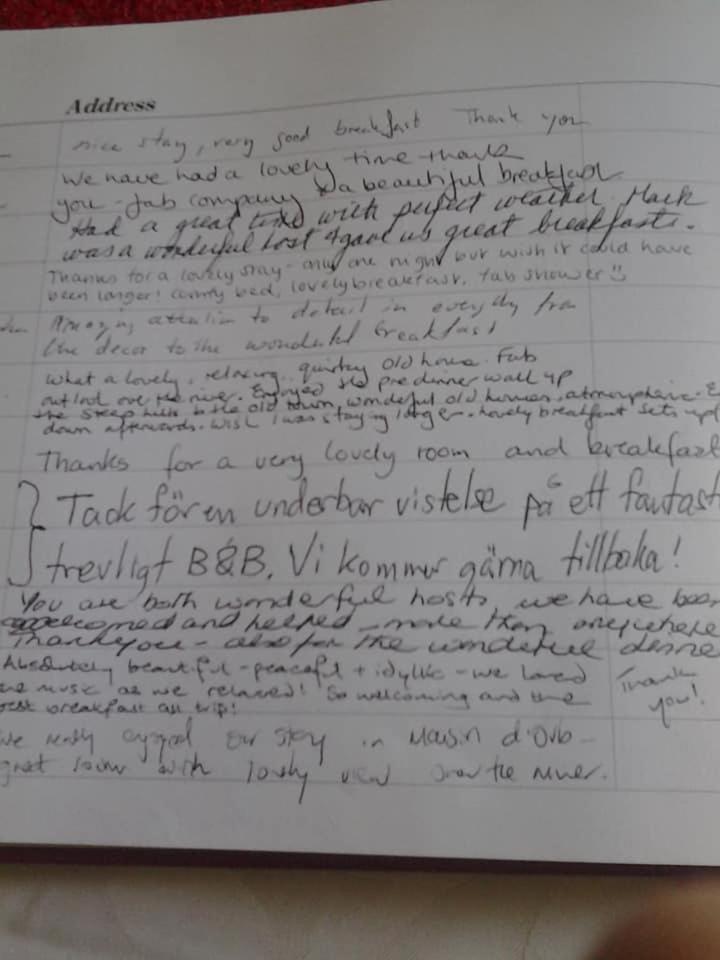 Address
nice stay, very good breakfast Thank you
We have had a lovely time thank
you - fab company & a beautiful breakfast.
Had a great time with perfect weather. Mack
was a wonderful host & gave us great breakfasts.
Thanks for a lovely stay - only one night but wish it could have
been longer! comfy bed, lovely breakfast, fab shower
Amazing attention to detail in from
the decor to the wonderful breakfast
What a lovely, relaxing, quirky old house. Fab
outlook over the river. Enjoyed the pre dinner walk up
the steep hills to the old town, wonderful old houses, atmosphere.
down afterwards. Wish I was staying longer. Lovely breakfast sets up
Thanks for a very lovely room and breakfast
Tack för en underbar vistelse på ett fantast
trevligt B&B. Vi kommer gärna tillbaka!
You are both wonderful hosts, we have been
welcomed and helped more than anywhere
Thankyou - also for the wonderful dinner
Absolutely beautiful - peaceful + idyllic - we loved
the music as we relaxed! So welcoming and the
best breakfast all trip!
Thank
you!
We really enjoyed our stay in Maison d'Orb -
great room with lovely view over the river.